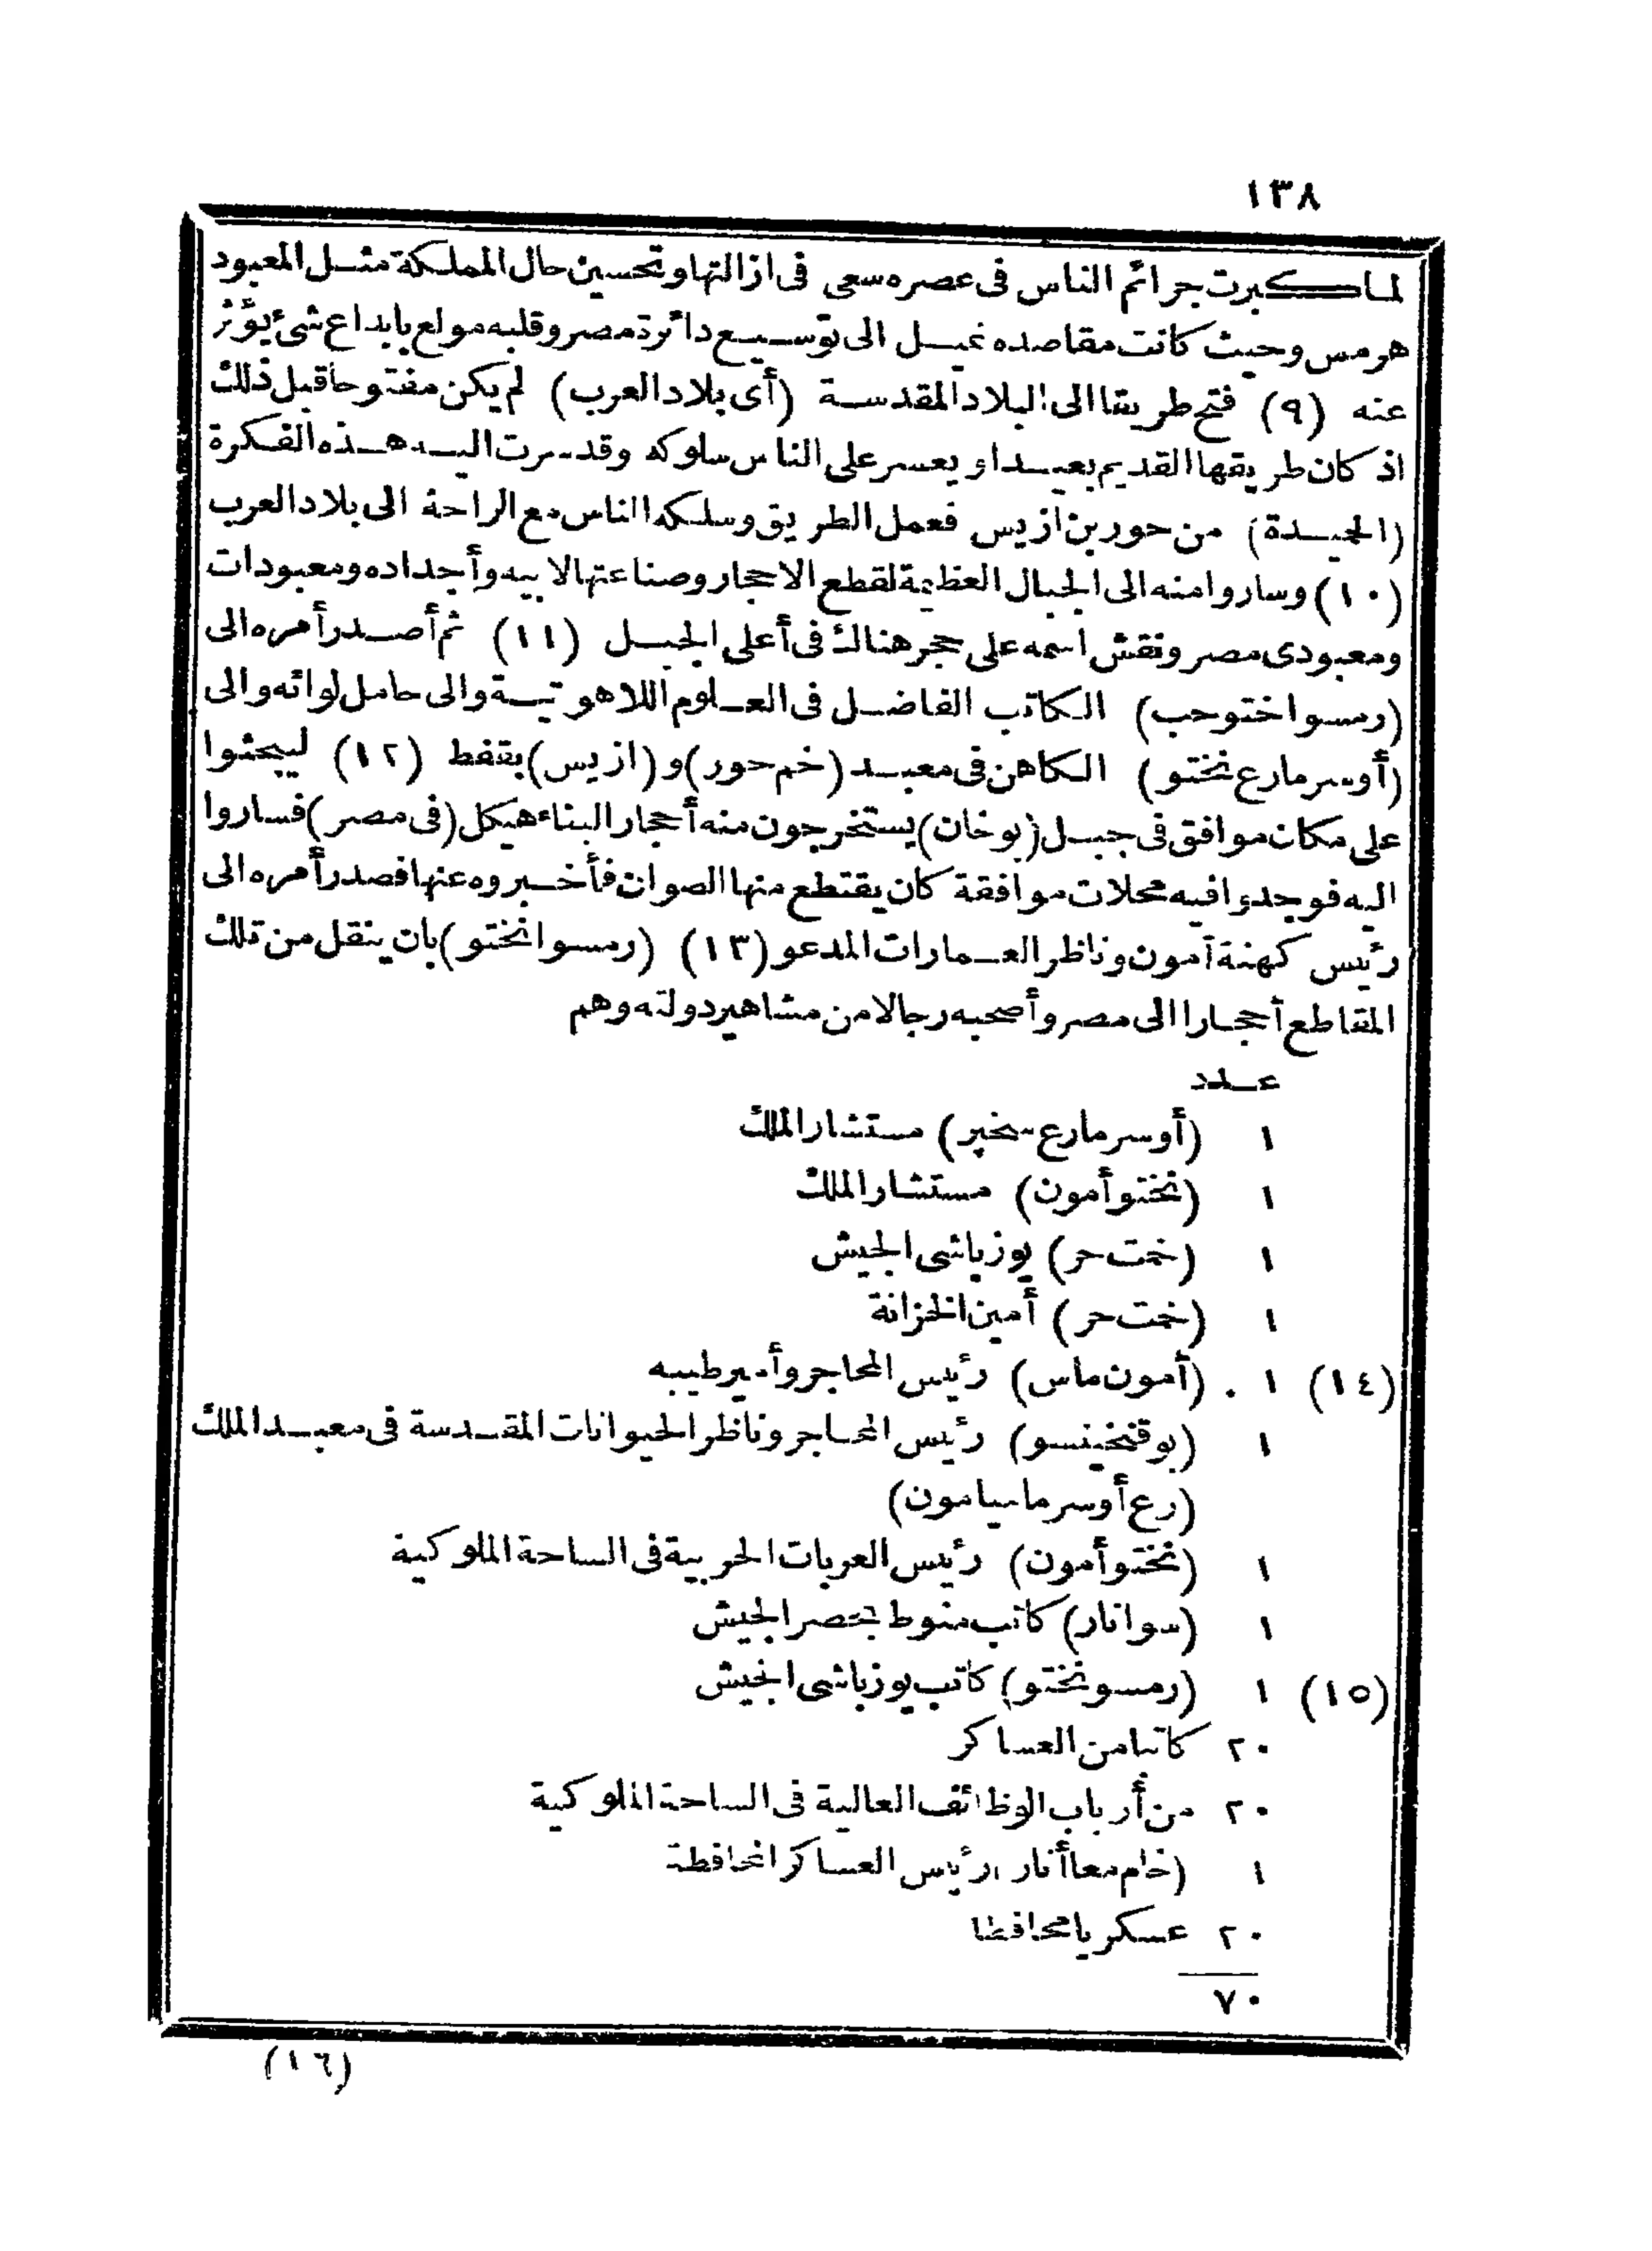 ١٣٨
لما كبرت جرائم الناس فى عصره سعى فى ازالتها وتحسين حال المملكة مثل المعبود
هرمس وحيث كانت مقاصده تميل الى توسيع دائرة مصر وقلبه مولع بابداع شئ يؤثر
عنه (٩) فتح طريقا الى البلاد المقدسة (أى بلاد العرب) لم يكن مفتوحا قبل ذلك
اذ كان طريقها القديم بعيدا ويعسر على الناس سلوكه وقد سرت اليه هذه الفكرة
(الجيدة) من حور بن ازيس فعمل الطريق وسلكه الناس مع الراحة الى بلاد العرب
(١٠) وساروا منه الى الجبال العظيمة لقطع الاحجار وصناعتها لابيه وأجداده ومعبودات
ومعبودى مصر ونقش اسمه على حجر هناك فى أعلى الجبل (١١) ثم أصدر أمره الى
(رمسوا ختوحب) الكاتب الفاضل فى العلوم اللاهوتية والى حامل لوائه والى
(أوسر مارع نختو) الكاهن فى معبد (خم حور) و (ازيس) بقفط (١٢) ليبحثوا
على مكان موافق فى جبل (بوخان) يستخرجون منه أحجار البناء هيكل (فى مصر) فساروا
اليه فوجدوا فيه محلات موافقة كان يقتطع منها الصوان فأخبروه عنها فصدر أمره الى
رئيس كهنة آمون وناظر العمارات المدعو (١٣) (رمسوا نختو) بان ينقل من تلك
المقاطع أحجارا الى مصر وأصحبه رجالا من مشاهير دولته وهم
عدد
١ (أوسر مارع سخپر) مستشار الملك
١ (نختو أمون) مستشار الملك
١ (خمت حر) يوزباشى الجيش
١ (خمت حر) أمين الخزانة
(١٤) ١ . (أمون ماس) رئيس المحاجر وأمير طيبه
١ (بوقنخينسو) رئيس المحاجر وناظر الحيوانات المقدسة فى معبد الملك
(رع أوسر ما ميامون)
١ (نختو أمون) رئيس العربات الحربية فى الساحة الملوكية
١ (سوانار) كاتب منوط بحصر الجيش
(١٥) ١ (رمسو نختو) كاتب يوزباشى الجيش
٢٠ كاتبا من العساكر
٢٠ من أرباب الوظائف العالية فى الساحة الملوكية
١ (خام معا أنار) رئيس العساكر المحافظة
٢٠ عسكريا محافظا
٧٠
(١٦)